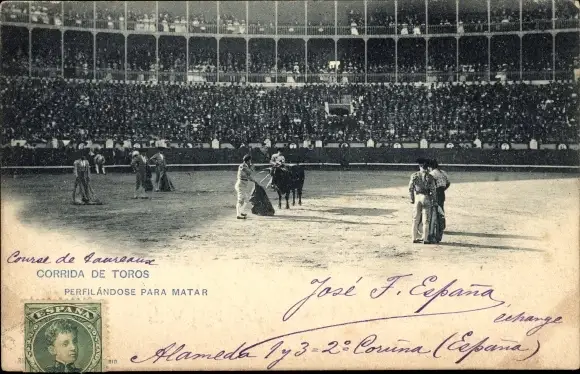 Course de Taureaux
CORRIDA DE TOROS
PERFILÁNDOSE PARA MATAR
José F. España
échange
Alameda 1 y 3 = 2º Coruña (España)
ESPAÑA